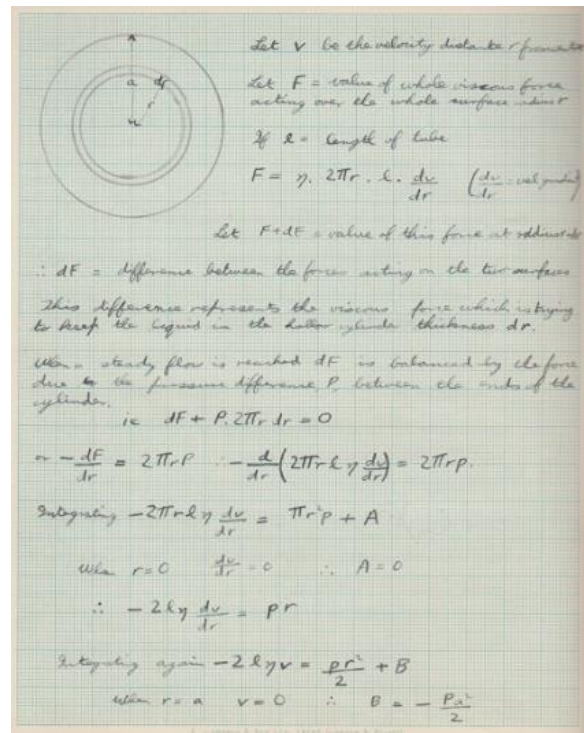 a dr
r
Let v be the velocity distance r from
Let F = value of whole viscous force
acting over the whole surface
If l = length of tube
F = η. 2πr. l. dv/dr (dv/dr = vel gradient)
Let F+dF = value of this force at radius
∴ dF = difference between the forces acting on the two surfaces
This difference represents the viscous force which is trying
to keep the liquid in the hollow cylinder thickness dr.
When steady flow is reached dF is balanced by the force
due to the pressure difference P between the ends of the
cylinder.
ie dF + P. 2πr dr = 0
or - dF/dr = 2πrP ∴ - d/dr (2πr l η dv/dr) = 2πrp.
Integrating - 2πr l η dv/dr = πr²p + A
When r = 0 dv/dr = 0 ∴ A = 0
∴ - 2 l η dv/dr = pr
Integrating again - 2 l η v = pr²/2 + B
When r = a v = 0 ∴ B = - Pa²/2